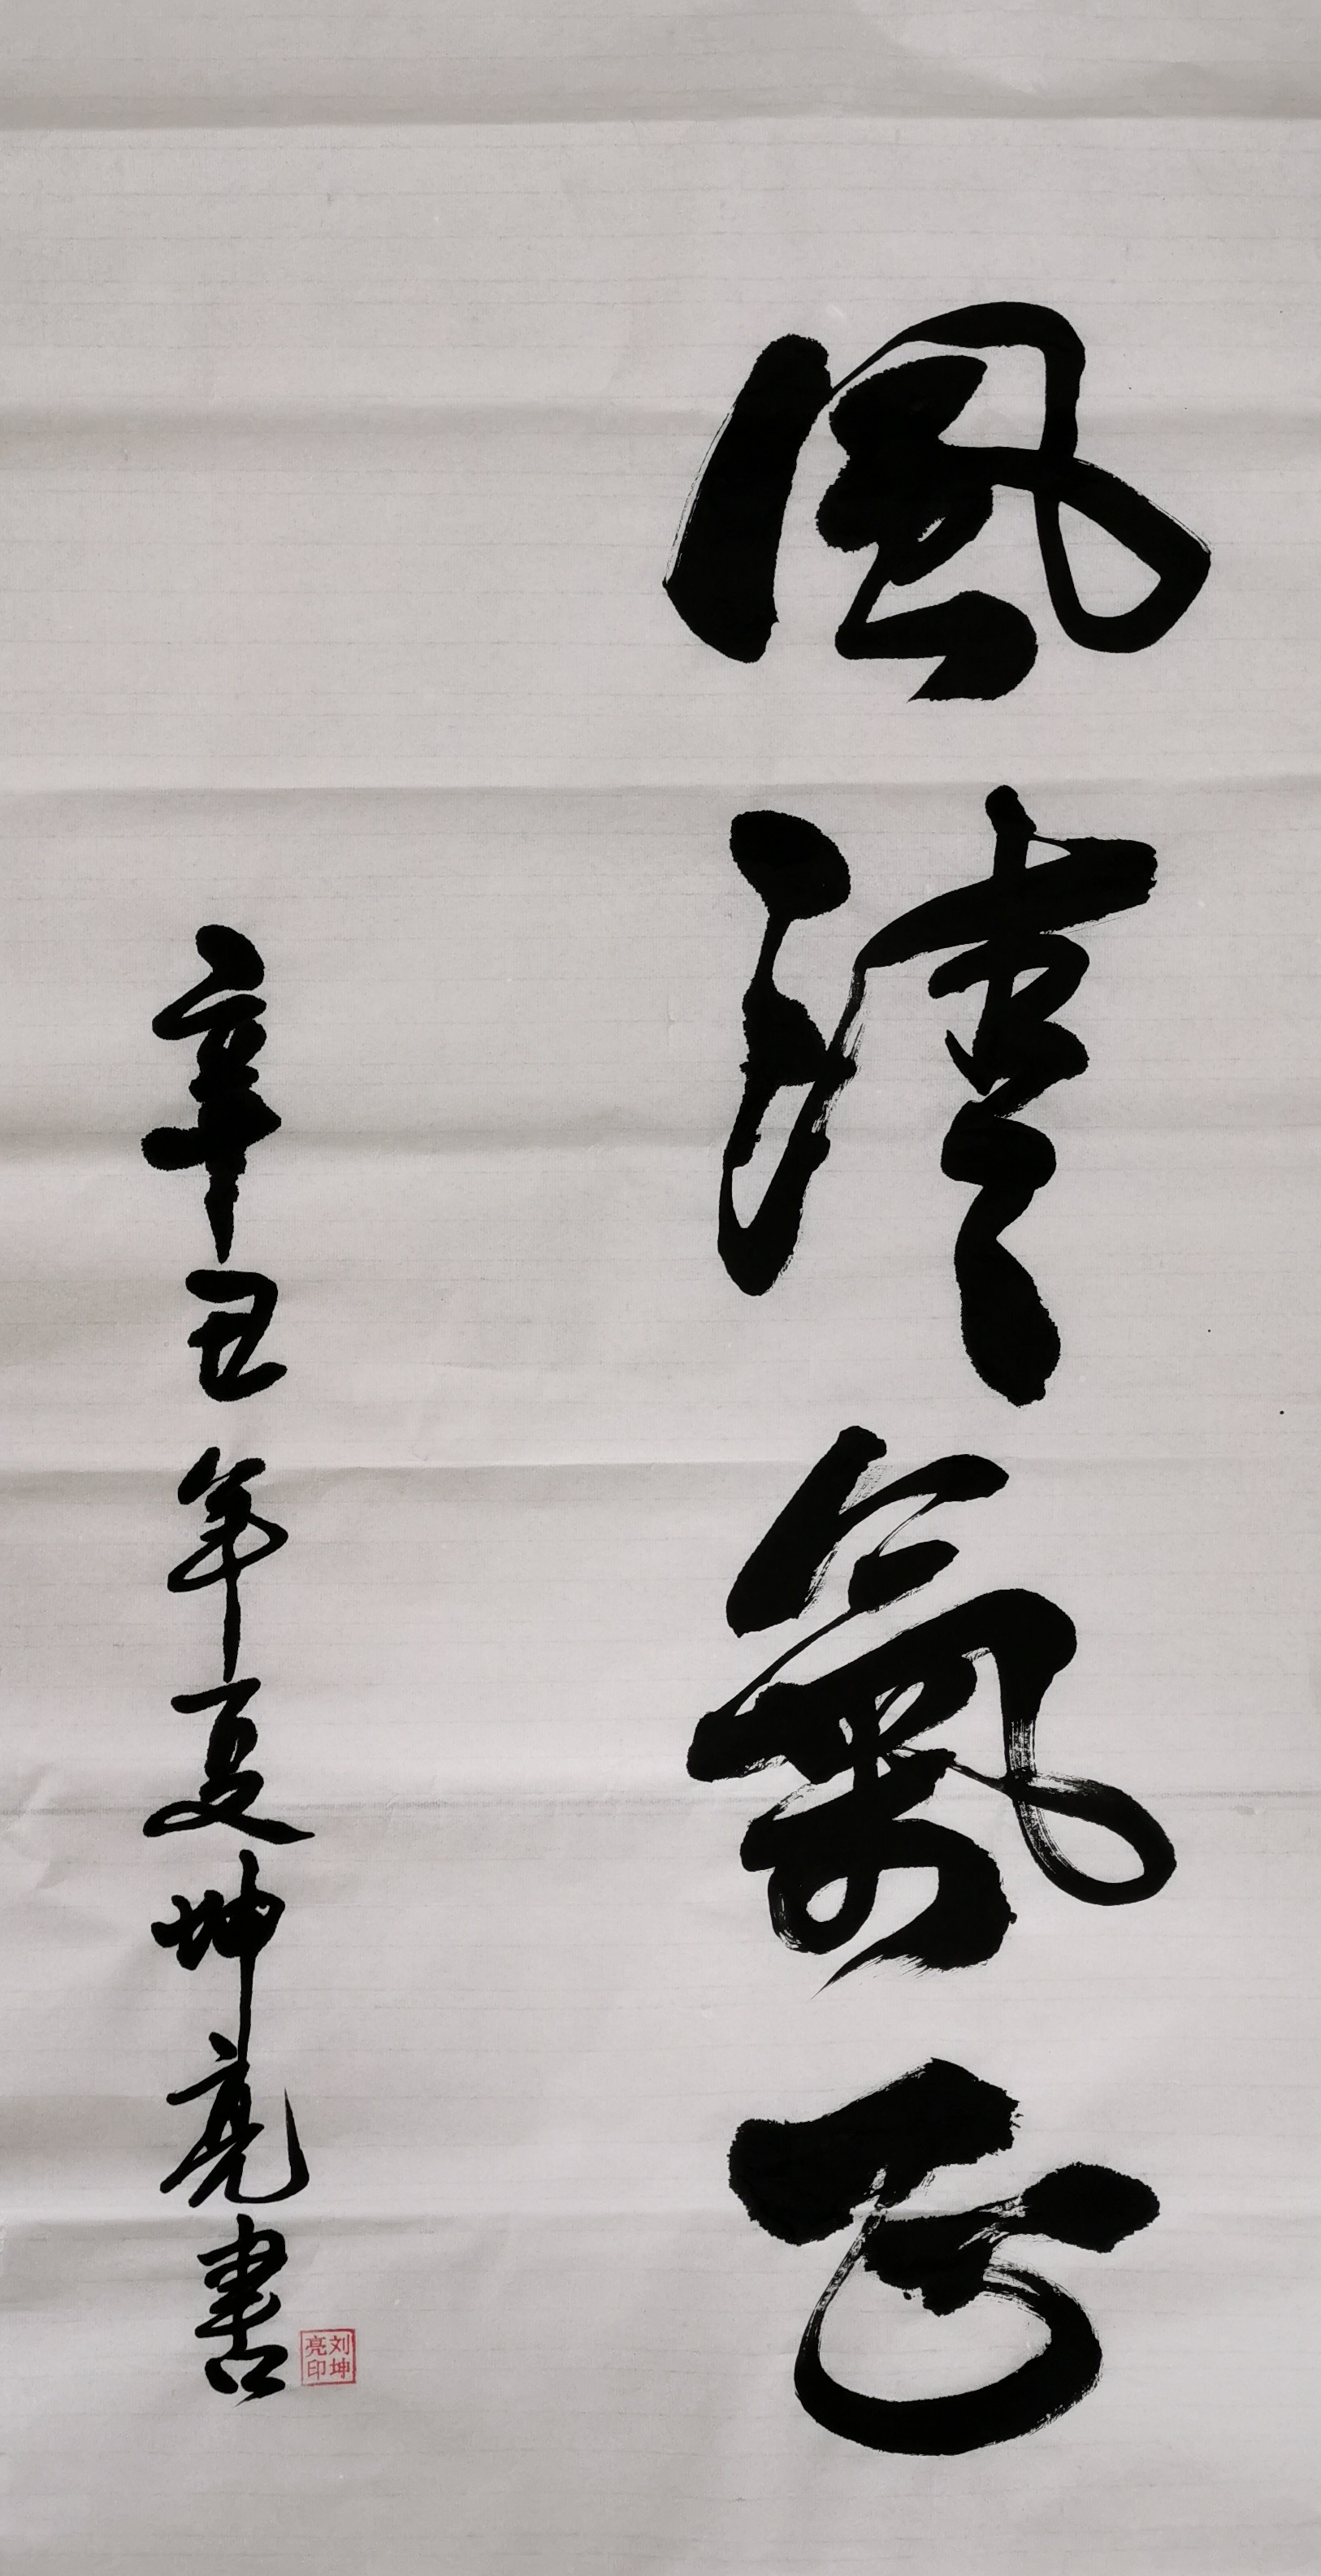 風清氣正
辛丑年夏坤亮書
刘坤
亮印